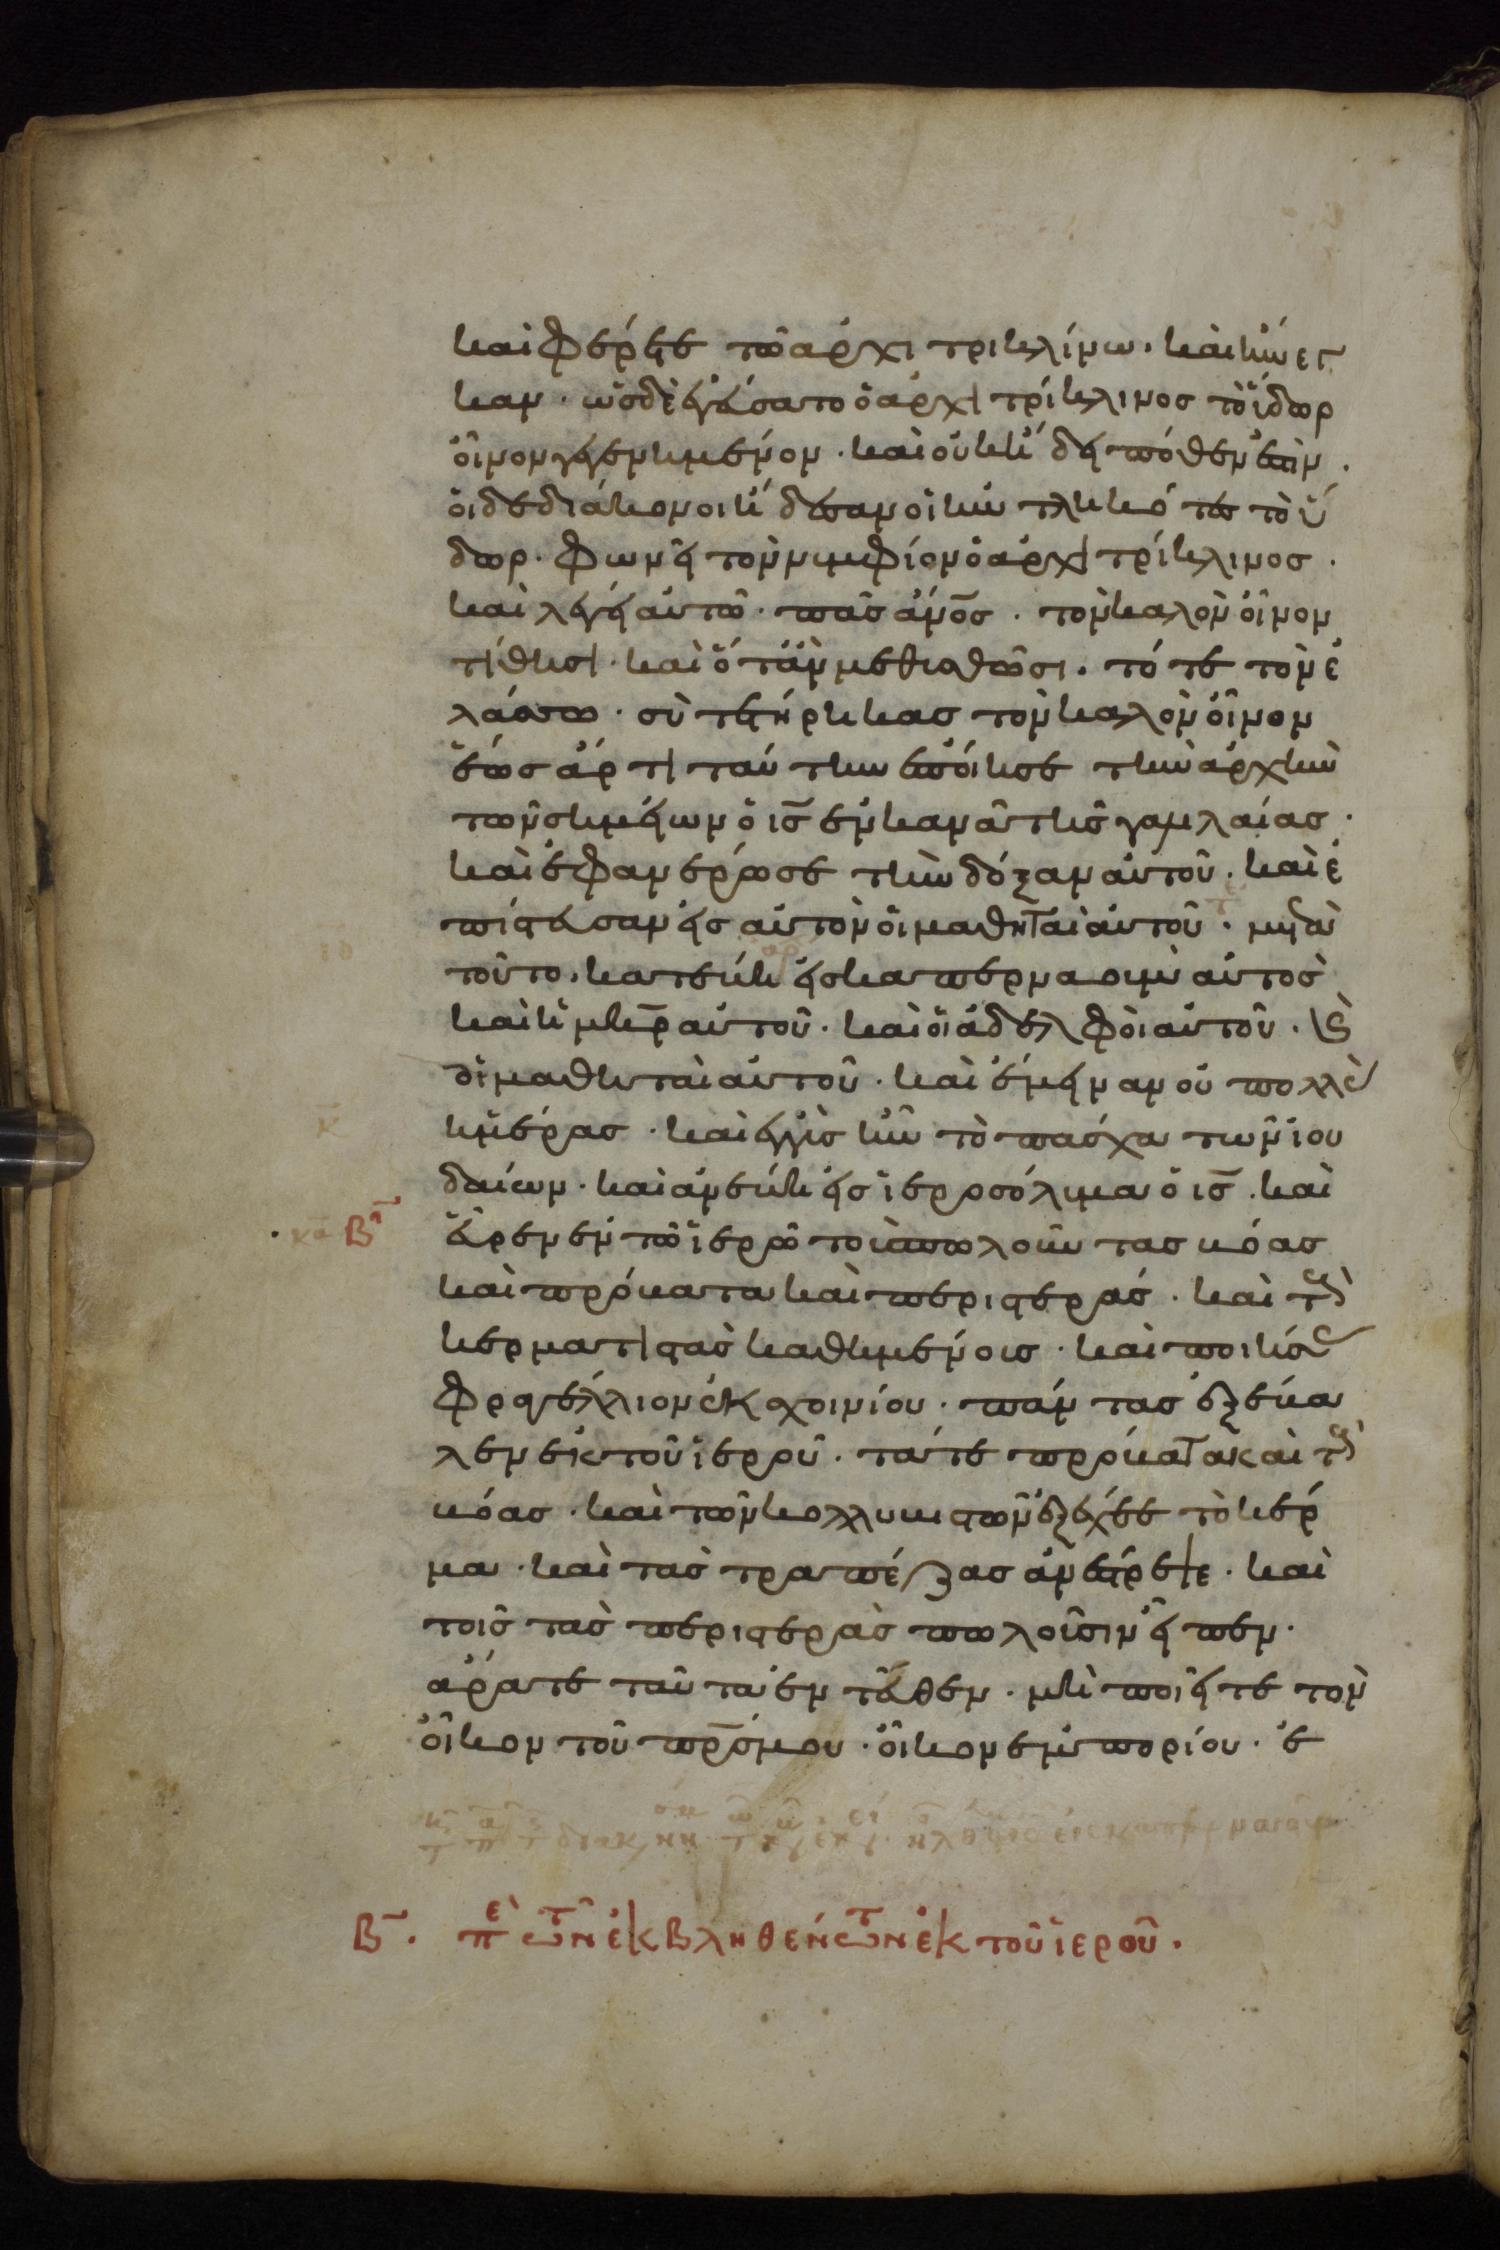 καὶ φέρετε τῶ ἀρχιτρικλίνω· καὶ ἤνεγ
καν· ὡς δὲ ἐγεύσατο ὁ ἀρχιτρίκλινος τὸ ὕδωρ
οἶνον γεγενημένον· καὶ οὐκ ἤδει πόθεν ἐστὶν·
οἱ δὲ διάκονοι ἤδεισαν οἱ ἠντληκότες τὸ ὕ
δωρ· φωνεῖ τὸν νυμφίον ὁ ἀρχιτρίκλινος·
καὶ λέγει αὐτῶ· πᾶς ἄνο̅ς· τὸν καλὸν οἶνον
τίθησι· καὶ ὅταν μεθυσθῶσι· τότε τὸν ἐ
λάσσω· σὺ τετήρηκας τὸν καλὸν οἶνον
ἕως ἄρτι ταύτην ἐποίησε τὴν ἀρχὴν
τῶν σημείων ὁ ις̅ ἐν κανᾶ τῆς γαλιλαίας·
καὶ ἐφανέρωσε τὴν δόξαν αὐτοῦ· καὶ ἐ
πίστευσαν εἰς αὐτὸν οἱ μαθηταὶ αὐτοῦ· μετὰ
τοῦτο· κατέβη εἰς καπερναοὺμ αὐτὸς
καὶ ἡ μηρ̅ αὐτοῦ· καὶ οἱ ἀδελφοὶ αὐτοῦ· καὶ
οἱ μαθηταὶ αὐτοῦ· καὶ ἔμειναν οὐ πολλὰς
ἡμέρας· καὶ ἐγγὺς ἦν τὸ πάσχα τῶν ἰου
δαίων· καὶ ἀνέβη εἰς ἱεροσόλυμα ὁ ις̅· καὶ
κα̅ Β̅ εὗρεν ἐν τῶ ἱερῶ τοὺς πωλοῦντας βόας
καὶ πρόβατα καὶ περιστεράς· καὶ τοὺς
κερματιστὰς καθημένους· καὶ ποιήσας
φραγέλλιον ἐκ σχοινίου· πάντας ἐξέβα
λεν ἐκ τοῦ ἱεροῦ· τά τε πρόβατα καὶ τοὺς
βόας· καὶ τῶν κολλυβιστῶν ἐξέχεε τὸ κέρ
μα· καὶ τὰς τραπέζας ἀνέστρεψε· καὶ
τοῖς τὰς περιστερὰς πωλοῦσιν εἶπεν·
ἄρατε ταῦτα ἐντεῦθεν· μὴ ποιεῖτε τὸν
οἶκον τοῦ πρς̅ μου· οἶκον ἐμπορίου· ἐ
Β̅· πε τῶν ἐκβληθέντων ἐκ τοῦ ἱεροῦ·